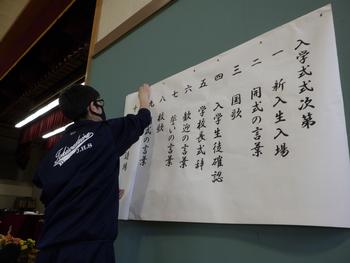 入学式式次第
一 新入生入場
二 開式の言葉
三 国歌
四 入学生徒確認
五 学校長式辞
六 歓迎の言葉
七 誓いの言葉
八 校歌
九 の言葉
J.H.S